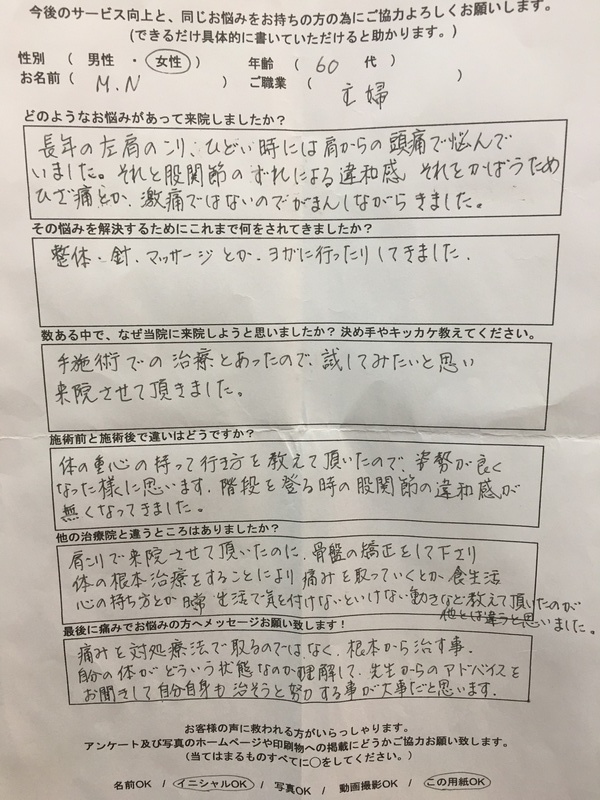 今後のサービス向上と、同じお悩みをお持ちの方の為にご協力よろしくお願いします。
(できるだけ具体的に書いていただけると助かります。)
性別 ( 男性 ・ 女性 ) 年齢 ( 60 代 )
お名前 ( M.N ) ご職業 ( 主婦 )
どのようなお悩みがあって来院しましたか?
長年の左肩のこり、ひどい時には肩からの頭痛で悩んで
いました。それと股関節のずれによる違和感、それをかばうため
ひざ痛とか、激痛ではないのでがまんしながらきました。
その悩みを解決するためにこれまで何をされてきましたか?
整体・針、マッサージとか、ヨガに行ったりしてきました.
数ある中で、なぜ当院に来院しようと思いましたか? 決め手やキッカケ教えてください。
手施術での治療とあったので、試してみたいと思い
来院させて頂きました。
施術前と施術後で違いはどうですか?
体の重心の持って行き方を教えて頂いたので、姿勢が良く
なった様に思います. 階段を登る時の股関節の違和感が
無くなってきました。
他の治療院と違うところはありましたか?
肩こりで来院させて頂いたのに、骨盤の矯正をして下さり
体の根本治療をすることにより痛みを取っていくとか 食生活
心の持ち方とか 日常生活で気を付けないといけない動きなど教えて頂いたのが
他とは違うと思いました。
最後に痛みでお悩みの方へメッセージお願い致します!
痛みを対処療法で取るのではなく、根本から治す事.
自分の体がどういう状態なのか理解して、先生からのアドバイスを
お聞きして自分自身も治そうと努力する事が大事だと思います.
お客様の声に救われる方がいらっしゃります。
アンケート及び写真のホームページや印刷物への掲載にどうかご協力お願い致します。
(当てはまるものすべてに○をしてください。)
名前OK / イニシャルOK / 写真OK / 動画撮影OK / この用紙OK